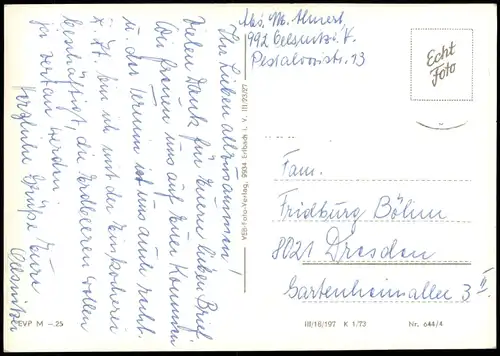 Ihr Lieben allzusammen!
Vielen Dank für Euern lieben Brief.
Wir freuen uns auf Euer Kommen
u. der Termin ist uns auch recht.
z. Zt. bin ich mit der Einkocherei
beschäftigt, die Erdbeeren wollen
ja vertan werden.
Herzliche Grüße Eure
Oelsnitzer
EVP M –.25
VEB Foto-Verlag, 9934 Erlbach i. V. A 1 III/23/27
Abs. M.
992 Oelsnitz i. V.
Pestalozzistr. 13
Echt
Foto
Fam.
Fridburg Böhm
8021 Dresden
Gartenheimallee 3 II
III/18/197 K 1/73 Nr. 644/4